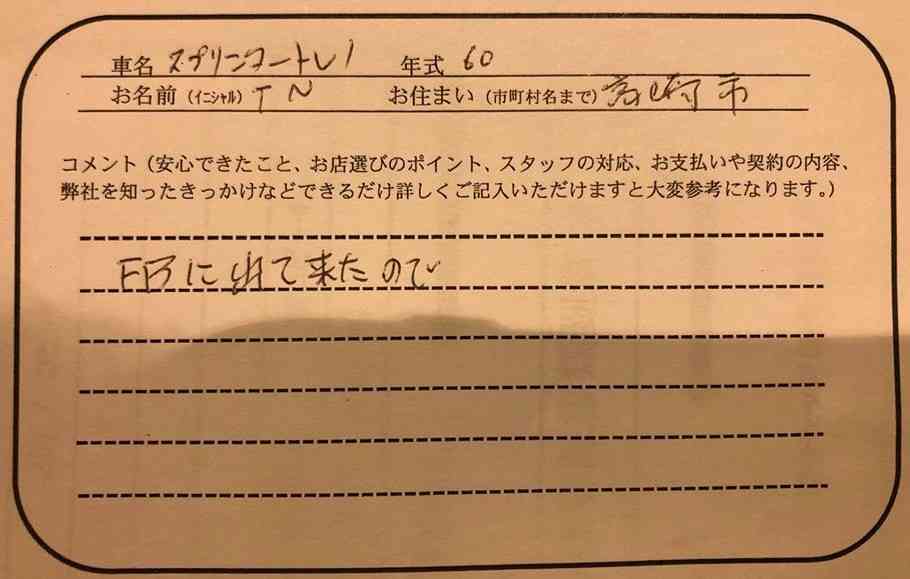 車名 スプリンタートレノ 年式 60
お名前（イニシャル）T N お住まい（市町村名まで）高崎市
コメント（安心できたこと、お店選びのポイント、スタッフの対応、お支払いや契約の内容、
弊社を知ったきっかけなどできるだけ詳しくご記入いただけますと大変参考になります。）
FBに出て来たので